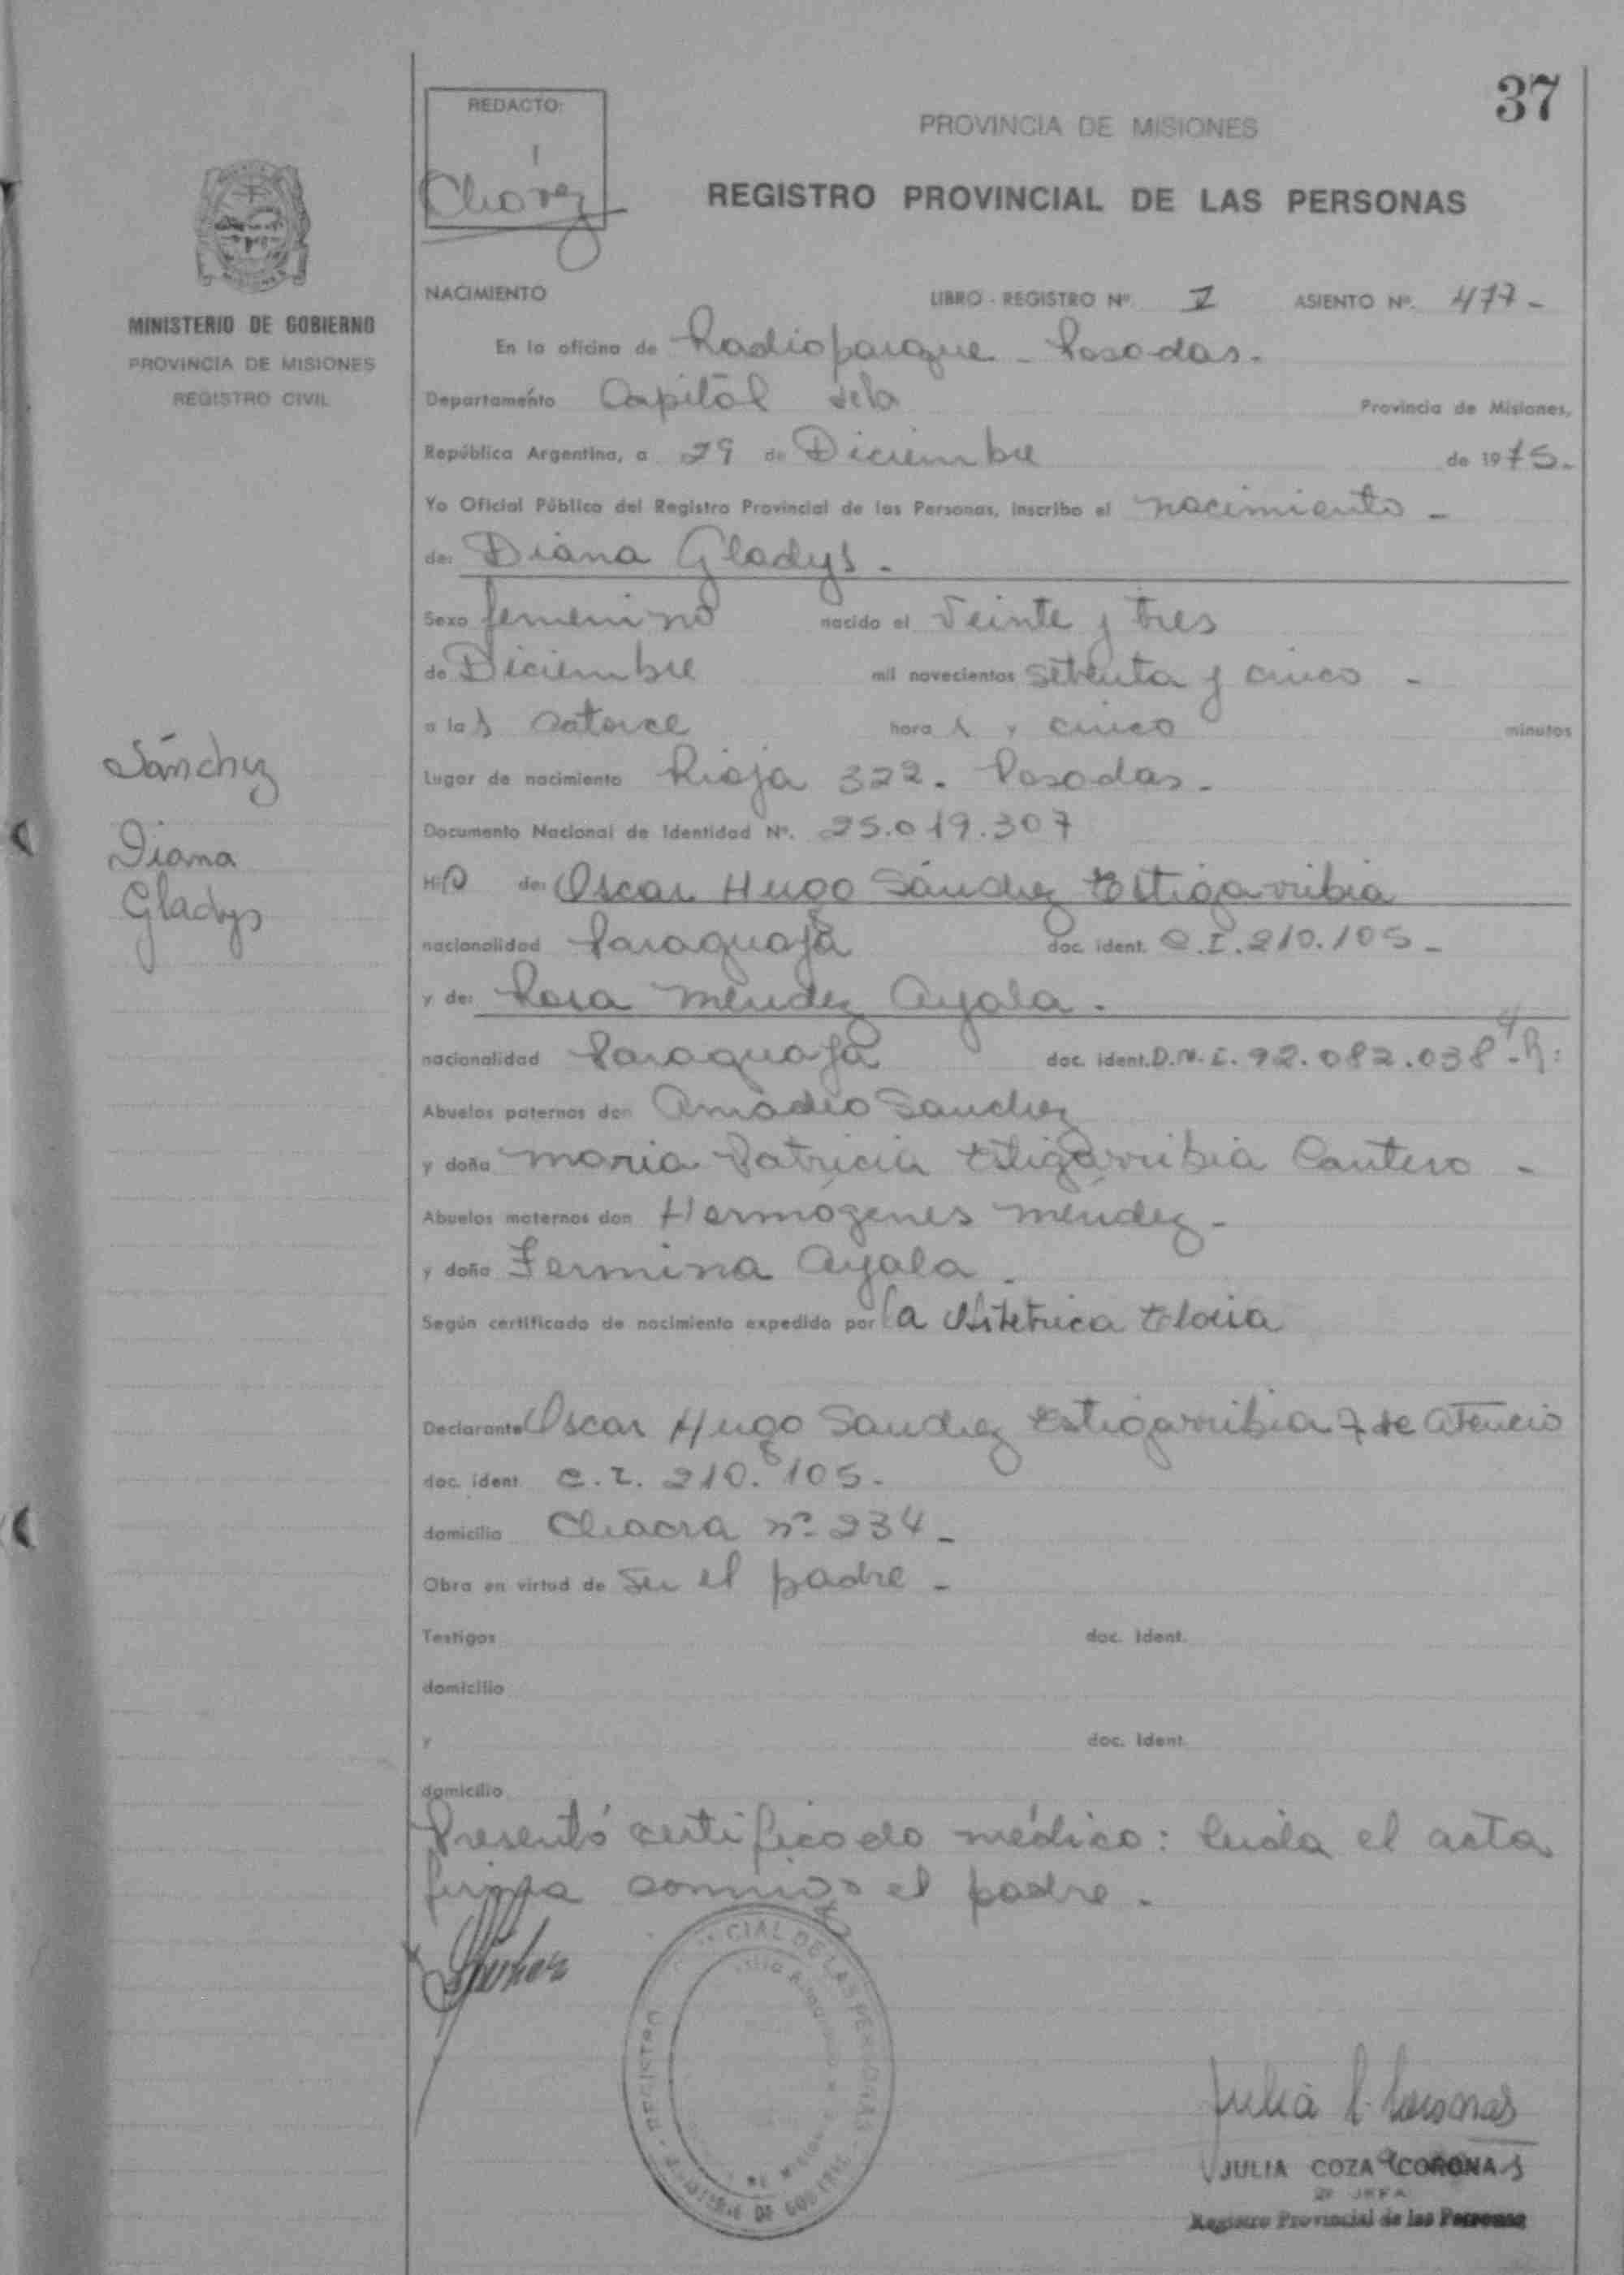 37
REDACTO:
Chavez
PROVINCIA DE MISIONES
REGISTRO PROVINCIAL DE LAS PERSONAS
MINISTERIO DE GOBIERNO
PROVINCIA DE MISIONES
REGISTRO CIVIL
NACIMIENTO LIBRO - REGISTRO Nº I ASIENTO Nº. 477 -
En la oficina de Radioparque - Posadas.
Departamento Capital de la Provincia de Misiones,
República Argentina, a 29 de Diciembre de 1975.
Yo Oficial Público del Registro Provincial de las Personas, inscribo el nacimiento -
de: Diana Gladys.
Sexo femenino nacido el Veinte y tres
de Diciembre mil novecientos setenta y cinco -
a las catorce horas y cinco minutos
Lugar de nacimiento Rioja 322. Posadas.
Documento Nacional de Identidad Nº. 25.019.307
Sánchez
Diana
Gladys
Hija de: Oscar Hugo Sánchez Estigarribia
nacionalidad Paraguaya doc. ident. C.I. 210.105 -
y de: Rosa Mendez Ayala.
nacionalidad Paraguaya doc. ident. D.N.I. 92.082.038
Abuelos paternos don Amadeo Sanchez
y doña Maria Patricia Estigarribia Cantero -
Abuelos maternos don Hermógenes Méndez -
y doña Fermina Ayala.
Según certificado de nacimiento expedido por la Obstetrica
Declarante Oscar Hugo Sanchez Estigarribia
doc. ident. C.I. 210.105.
domicilio Chacra nº 234 -
Obra en virtud de ser el padre -
Testigos doc. ident.
domicilio
y doc. ident.
domicilio
Presentó certificado médico: leida el acta
firma conmigo el padre.
CIAL DE LAS PERSONAS
MINISTERIO DE GOBIERNO
JULIA COZA CORONA
2º JEFA
Registro Provincial de las Personas